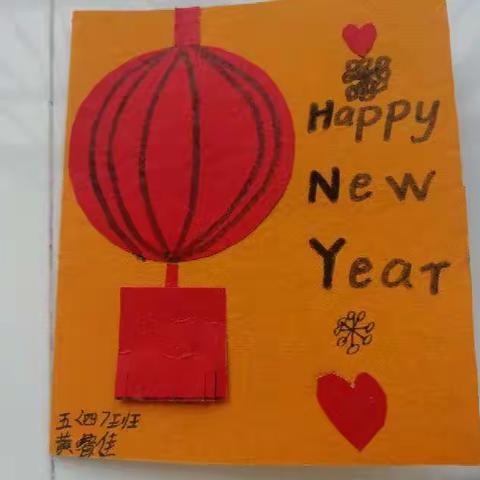 Happy
New
Year
五<四>班
黄
佳